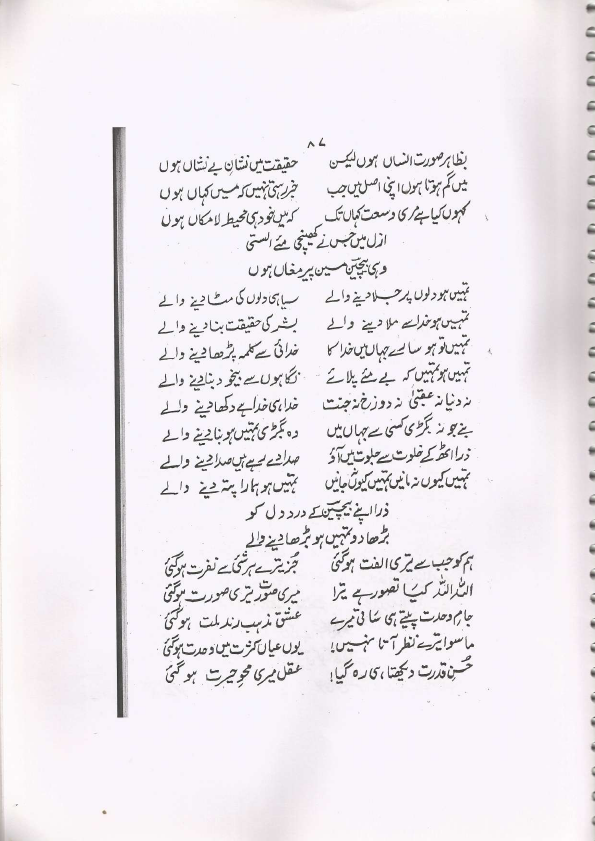 ۸۷
بظاہر صورت انساں ہوں لیکن حقیقت میں نشانِ بے نشاں ہوں
میں گم ہوتا ہوں اپنی اصل میں جب خبر رہتی نہیں کہ میں کہاں ہوں
کہوں کیا ہے مری وسعت کہاں تک کہ میں خود ہی محیط لامکاں ہوں
ازل میں جس نے کھینچی مئے الستی
وہی بیچینؔ مین پیر مغاں ہوں
تمہیں ہو دلوں پر جلا دینے والے سیاہی دلوں کی مٹا دینے والے
تمہیں ہو خدا سے ملا دینے والے بشر کی حقیقت بنا دینے والے
تمہیں تو ہو سارے جہاں میں خدا کا خدائی سے کلمہ پڑھا دینے والے
تمہیں ہو تمہیں کہ بے مئے پلائے نگاہوں سے بیخود بنا دینے والے
نہ دنیا نہ عقبیٰ نہ دوزخ نہ جنت خدا ہی خدا ہے دکھا دینے والے
بنے جو نہ بگڑی کسی سے جہاں میں وہ بگڑی تمہیں ہو بنا دینے والے
ذرا اٹھ کے خلوت سے جلوت میں آؤ صدا دے رہے ہیں صدا دینے والے
تمہیں کیوں نہ مانیں تمہیں کیوں نہ جانیں تمہیں ہو ہمارا پتہ دینے والے
ذرا اپنے بیچینؔ کے درد دل کو
بڑھا دو تمہیں ہو بڑھا دینے والے
ہم کو جب سے تیری الفت ہوگئی جُز ترے ہر شئی سے نفرت ہوگئی
اللہ اللہ کیا تصور ہے ترا میری صورت تیری صورت ہوگئی
جام وحدت پیتے ہی ساقی تیرے عشق مذہب رند ملت ہوگئی
ماسوا تیرے نظر آتا نہیں! یوں عیاں کثرت میں وحدت ہوگئی
حُسنِ قدرت دیکھتا ہی رہ گیا! عقل میری محو حیرت ہوگئی